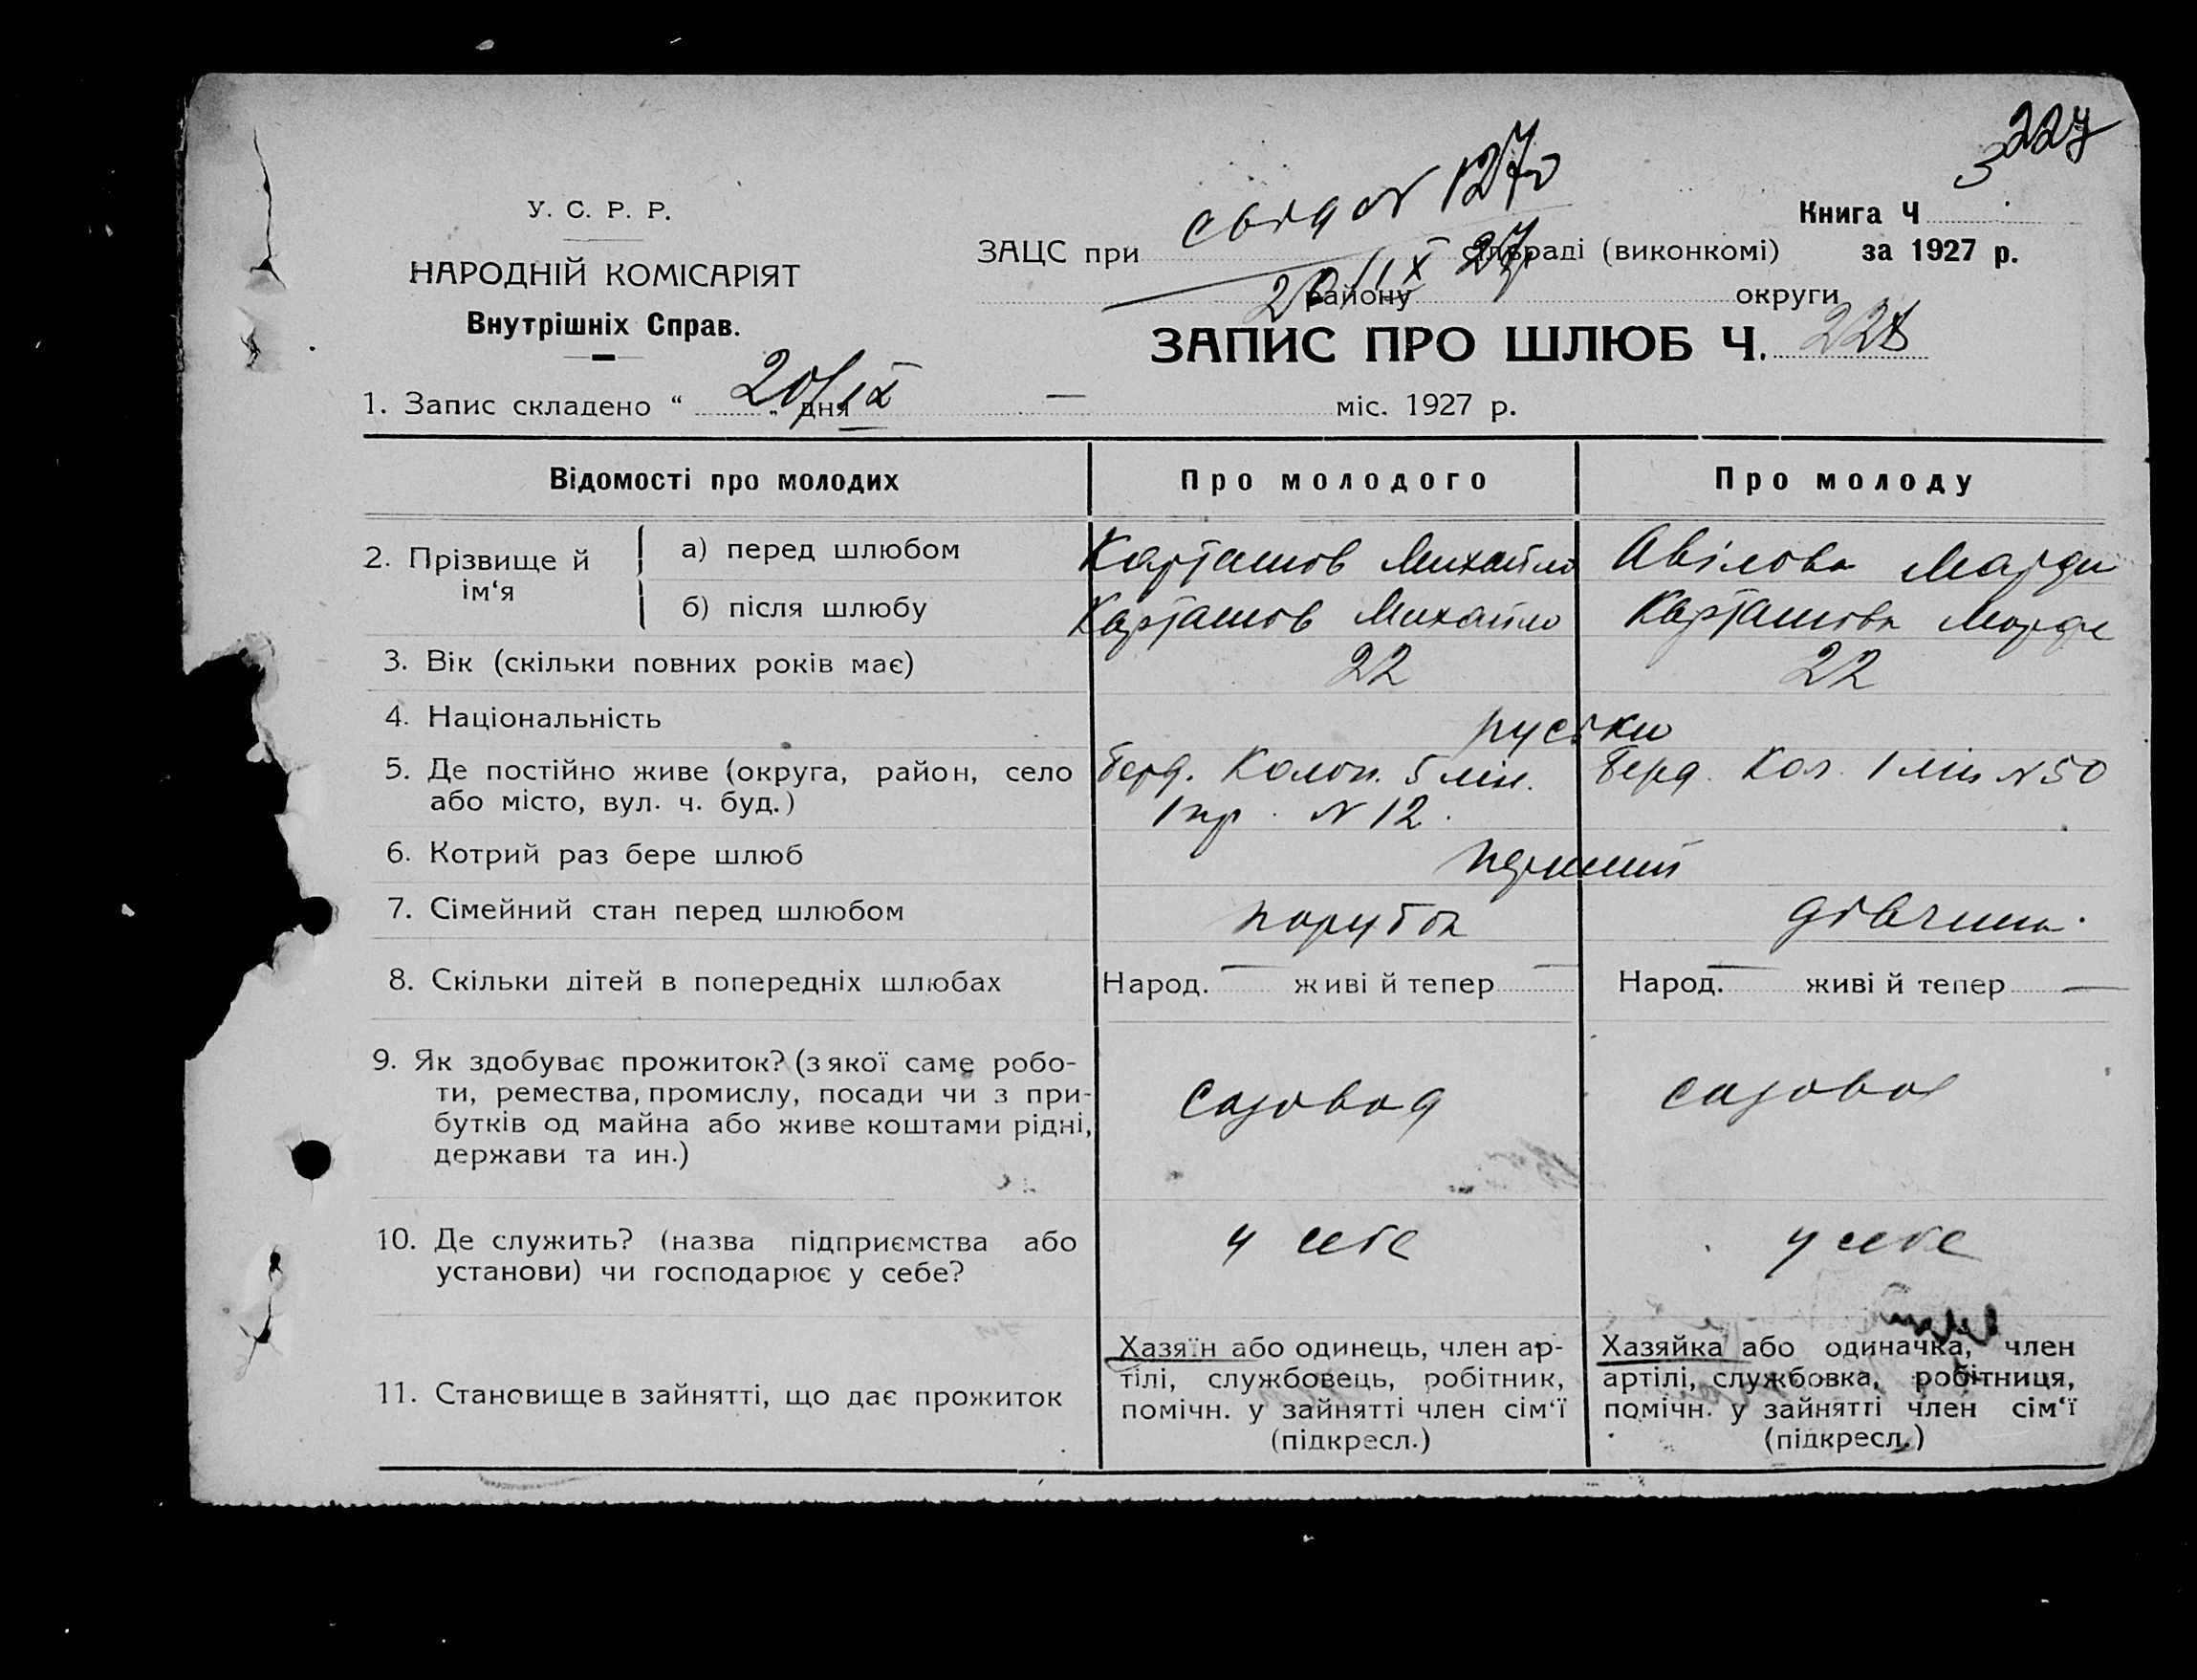 227
3
У. С. Р. Р.
НАРОДНІЙ КОМІСАРІЯТ
Внутрішніх Справ.
свід N 1270
20/IX 27
ЗАЦС при сільраді (виконкомі)
району округи
Книга Ч
за 1927 р.
ЗАПИС ПРО ШЛЮБ Ч. 228
1. Запис складено “ 20/IX „ дня — міс. 1927 р.
Відомості про молодих Про молодого Про молоду
2. Прізвище й ім‘я
а) перед шлюбом Карташов Михайло Авілова
б) після шлюбу Карташов Михайло Карташова
3. Вік (скільки повних років має) 22 22
4. Національність руські
5. Де постійно живе (округа, район, село Берд. Колон. 5 лін. Берд. Кол. 1 лін N 50
або місто, вул. ч. буд.) 1 пр. N 12.
6. Котрий раз бере шлюб перший
7. Сімейний стан перед шлюбом парубок дівчина.
8. Скільки дітей в попередніх шлюбах Народ. — живі й тепер — Народ. — живі й тепер —
9. Як здобуває прожиток? (з якої саме робо-
ти, ремества, промислу, посади чи з при-
бутків од майна або живе коштами рідні,
держави та ин.)
садовод садовод
10. Де служить? (назва підприємства або
установи) чи господарює у себе?
у себе у себе
11. Становище в зайнятті, що дає прожиток
Хазяїн або одинець, член ар-
тілі, службовець, робітник,
помічн. у зайнятті член сім‘ї
(підкресл.)
Хазяйка або одиначка, член
артілі, службовка, робітниця,
помічн. у зайнятті член сім‘ї
(підкресл.)